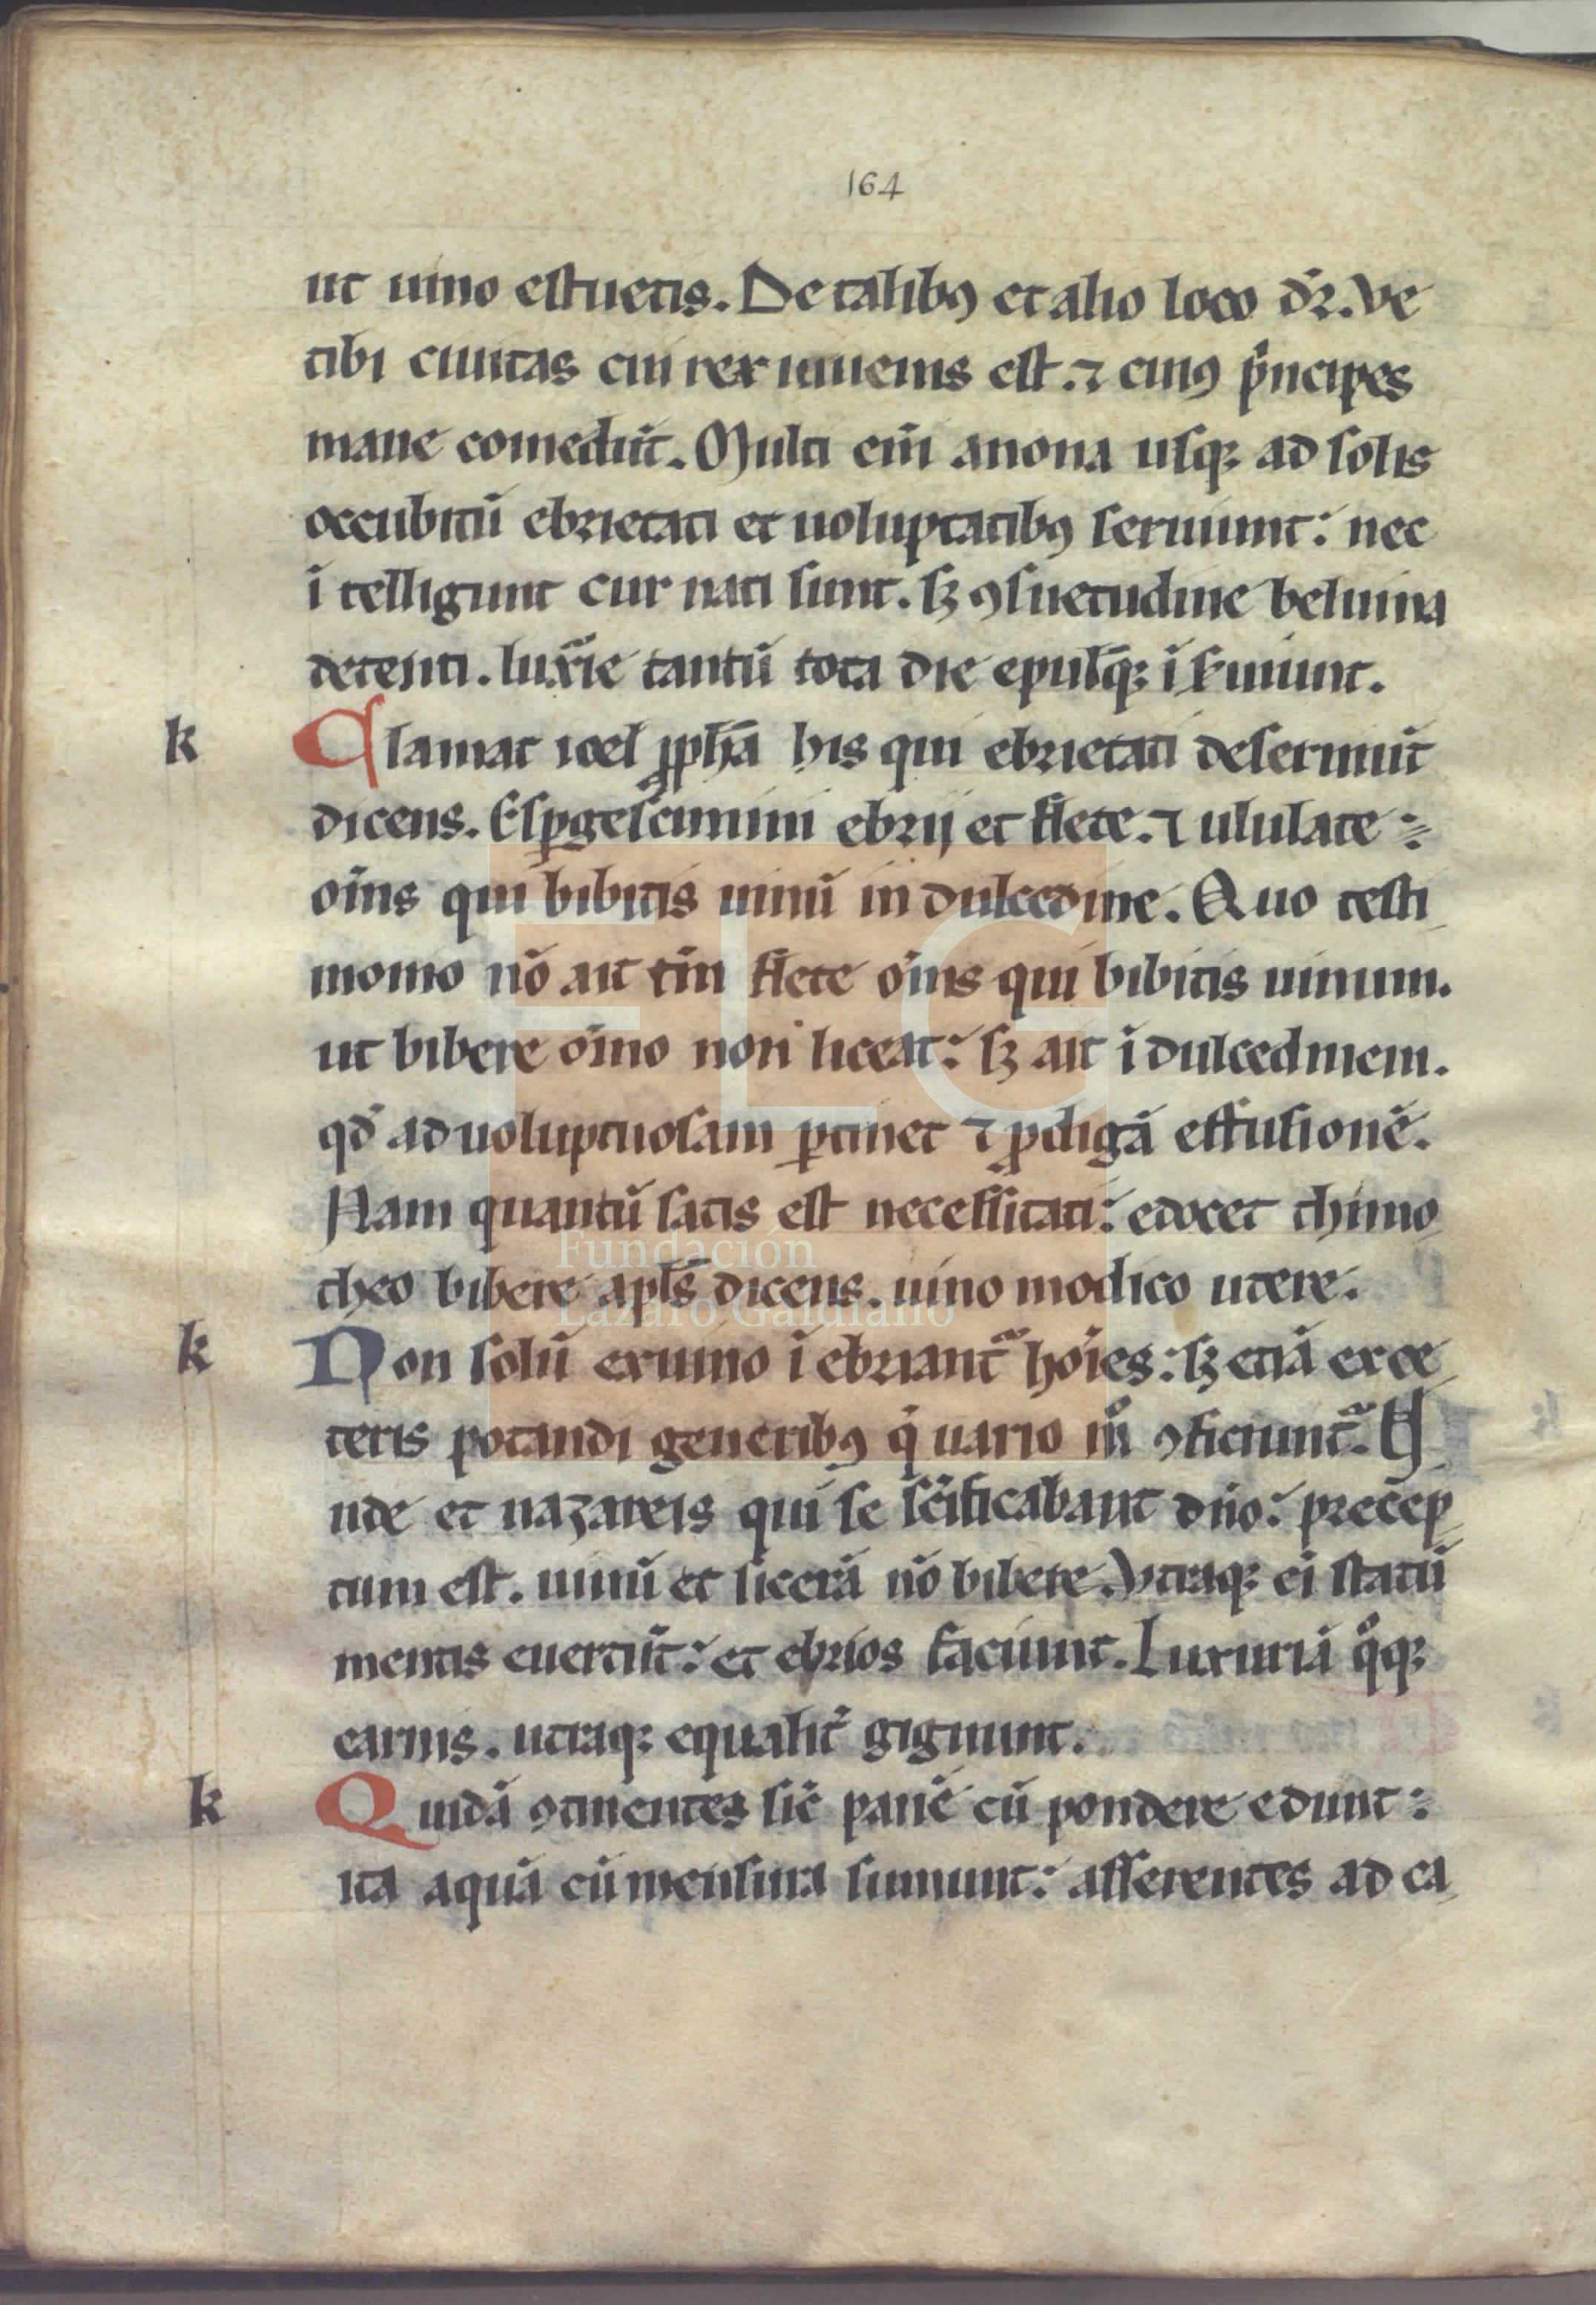 164
ut uino estuetis. De talibꝫ et alio loco dr̄. Ve
tibi ciuitas cui rex iuuenis est. ⁊ cuiꝰ p̄ncipes
mane comedūt. Multi eni̅ a nona usqꝫ ad solis
occubitū ebrietati et uoluptatibꝰ seruiunt: nec
i̅ telligunt cur nati sunt. sꝫ ꝯsuetudine beluina
detenti. luxˀie tantū tota die epul̄qꝫ i̅ s̄uiunt.
k Clamat ioel ꝓph̄a his qui ebrietati deseruiūt
dicens. Exꝑgescimini ebrij et flete. ⁊ ululate:
om̄s qui bibitis uinū in dulcedine. Quo testi
monio nō ait tm̄ flete om̄s qui bibitis uinum.
ut bibere om̄ino non liceat: sꝫ ait i̅ dulcedinem.
qd̄ ad uoluptuosam ꝑtinet ⁊ ꝓdigā effusionē.
Nam quantū satis est necessitati: edocet thimo
theo bibere apl̄s dicens. uino modico utere.
k Non solū ex uino i̅ ebriant᷑ hoi̅es: sꝫ etiā ex ce
teris potandi generibꝰ q̄ uario m̊ ꝯficiunt᷑. U
nde et nazareis qui se sc̄ificabant dn̄o: precep
tum est. uinū et sicerā nō bibere. Vtraqꝫ ei̅ statū
mentis euertūt: et ebrios faciunt. Luxuriā q̊qꝫ
carnis. utraqꝫ equalit̄ gignunt.
k Quidā ꝯtinentes sic̄ panē cū pondere edunt:
ita aquā cū mensura sumunt: asserentes ad ca
Fundación
Lázaro Galdiano
FLG